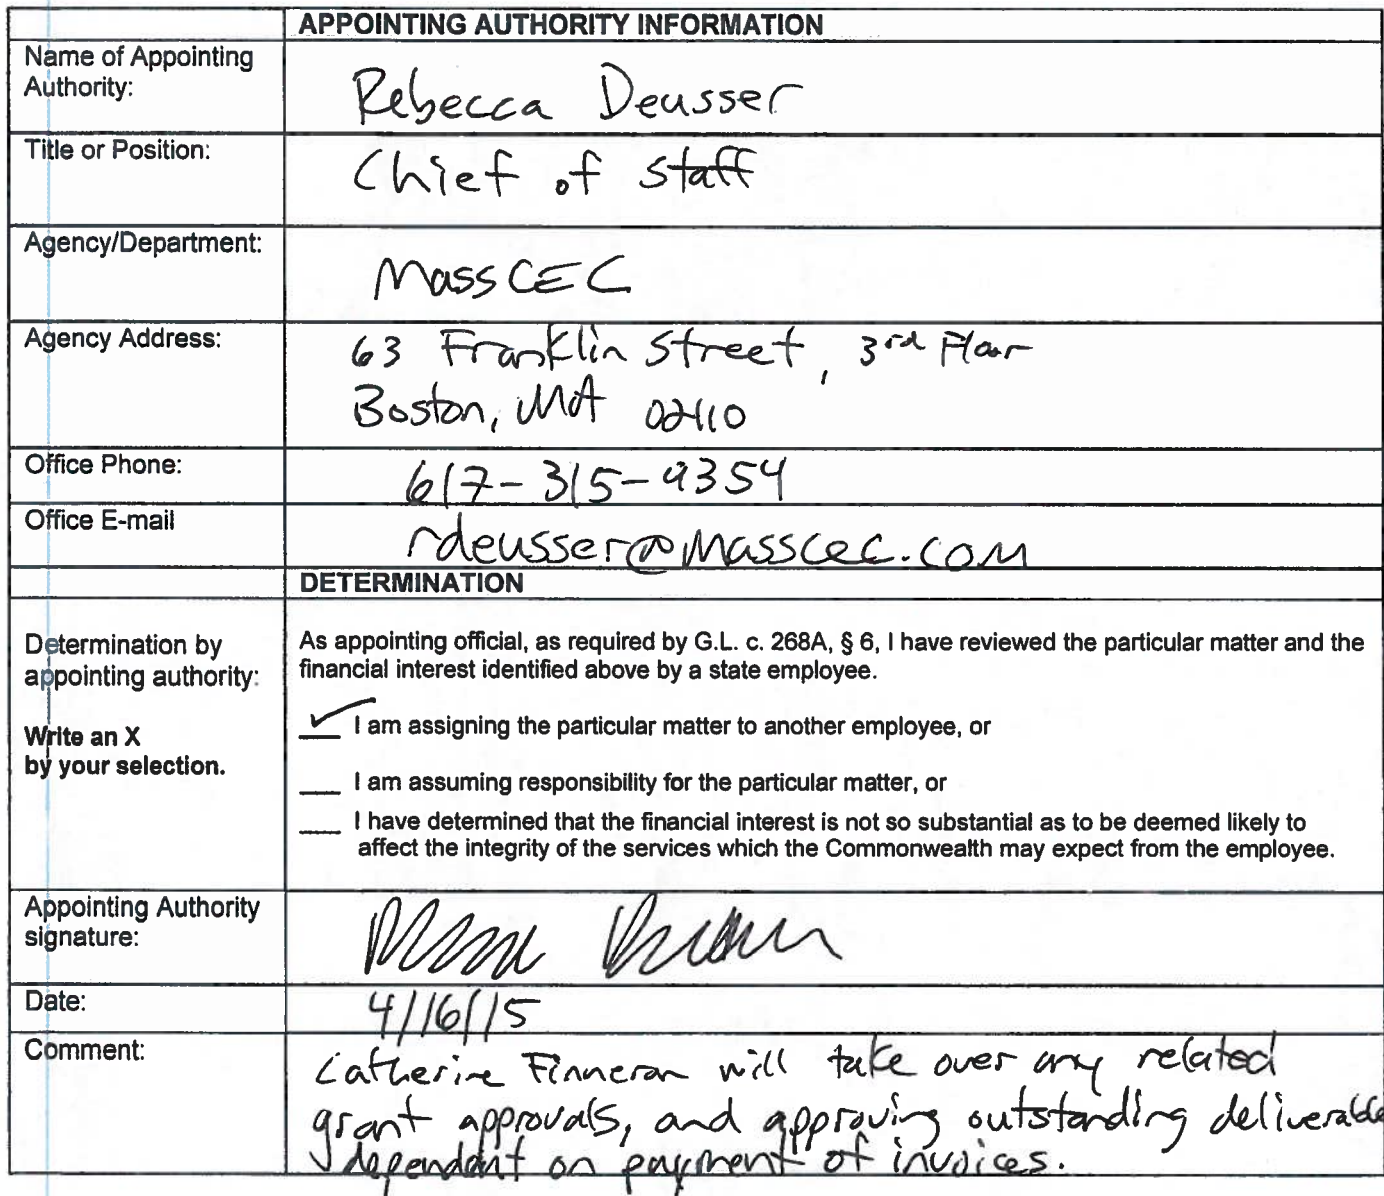 APPOINTING AUTHORITY INFORMATION
Name of Appointing
Authority:
Rebecca Deusser
Title or Position:
Chief of staff
Agency/Department:
MassCEC
Agency Address:
63 Franklin Street, 3rd Floor
Boston, MA 02110
Office Phone:
617-315-9354
Office E-mail
rdeusser@masscec.com
DETERMINATION
Determination by
appointing authority:
Write an X
by your selection.
As appointing official, as required by G.L. c. 268A, § 6, I have reviewed the particular matter and the
financial interest identified above by a state employee.
✓ I am assigning the particular matter to another employee, or
___ I am assuming responsibility for the particular matter, or
___ I have determined that the financial interest is not so substantial as to be deemed likely to
affect the integrity of the services which the Commonwealth may expect from the employee.
Appointing Authority
signature:
Date:
4/16/15
Comment:
Catherine Finneran will take over any related
grant approvals, and approving outstanding deliverable
dependant on payment of invoices.